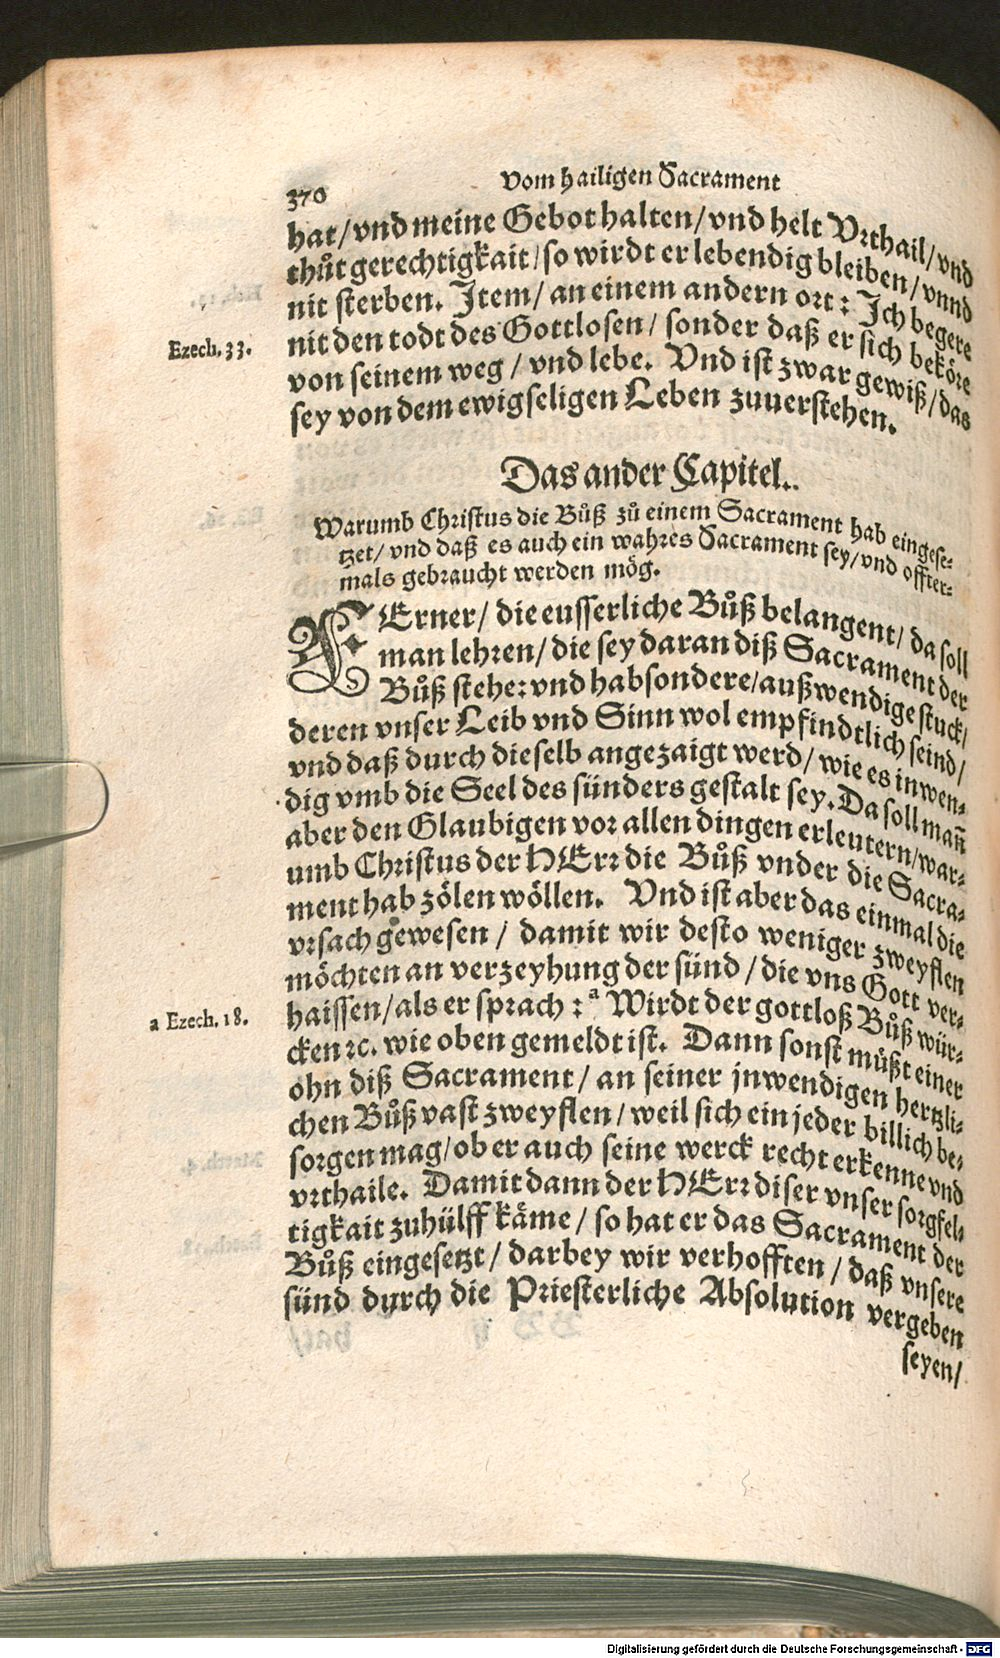 370
Vom hailigen Sacrament
hat/ vnd meine Gebot halten/ vnd helt Vrthail/ vnd
thůt gerechtigkait/ so wirdt er lebendig bleiben/ vnnd
nit sterben. Item/ an einem andern ort: Ich begere
Ezech. 33.
nit den todt des Gottlosen/ sonder daß er sich beköre
von seinem weg/ vnd lebe. Vnd ist zwar gewiß/ das
sey von dem ewigseligen Leben zuuerstehen.
Das ander Capitel.
Warumb Christus die Bůß zů einem Sacrament hab eingese-
tzet/ vnd daß es auch ein wahres Sacrament sey/ vnd offter-
mals gebraucht werden mög.
FErner/ die eusserliche Bůß belangent/ da soll
man lehren/ die sey daran diß Sacrament der
Bůß stehe: vnd hab sondere/ außwendige stuck/
deren vnser Leib vnd Sinn wol empfindtlich seind/
vnd daß durch dieselb angezaigt werd/ wie es inwen-
dig vmb die Seel des sünders gestalt sey. Da soll mañ
aber den Glaubigen vor allen dingen erleutern/ war-
umb Christus der HErr die Bůß vnder die Sacra-
ment hab zölen wöllen. Vnd ist aber das einmal die
vrsach gewesen/ damit wir desto weniger zweyflen
möchten an verzeyhung der sünd/ die vns Gott ver-
haissen/ als er sprach: ª Wirdt der gottloß Bůß wür-
a Ezech. 18.
cken ꝛc. wie oben gemeldt ist. Dann sonst müßt einer
ohn diß Sacrament/ an seiner jnwendigen hertzli-
chen Bůß vast zweyflen/ weil sich ein jeder billich be-
sorgen mag/ ob er auch seine werck recht erkenne vnd
vrthaile. Damit dann der HErr diser vnser sorgfel-
tigkait zuhülff käme/ so hat er das Sacrament der
Bůß eingesetzt/ darbey wir verhofften/ daß vnsere
sünd durch die Priesterliche Absolution vergeben
seyen/
Digitalisierung gefördert durch die Deutsche Forschungsgemeinschaft - DFG